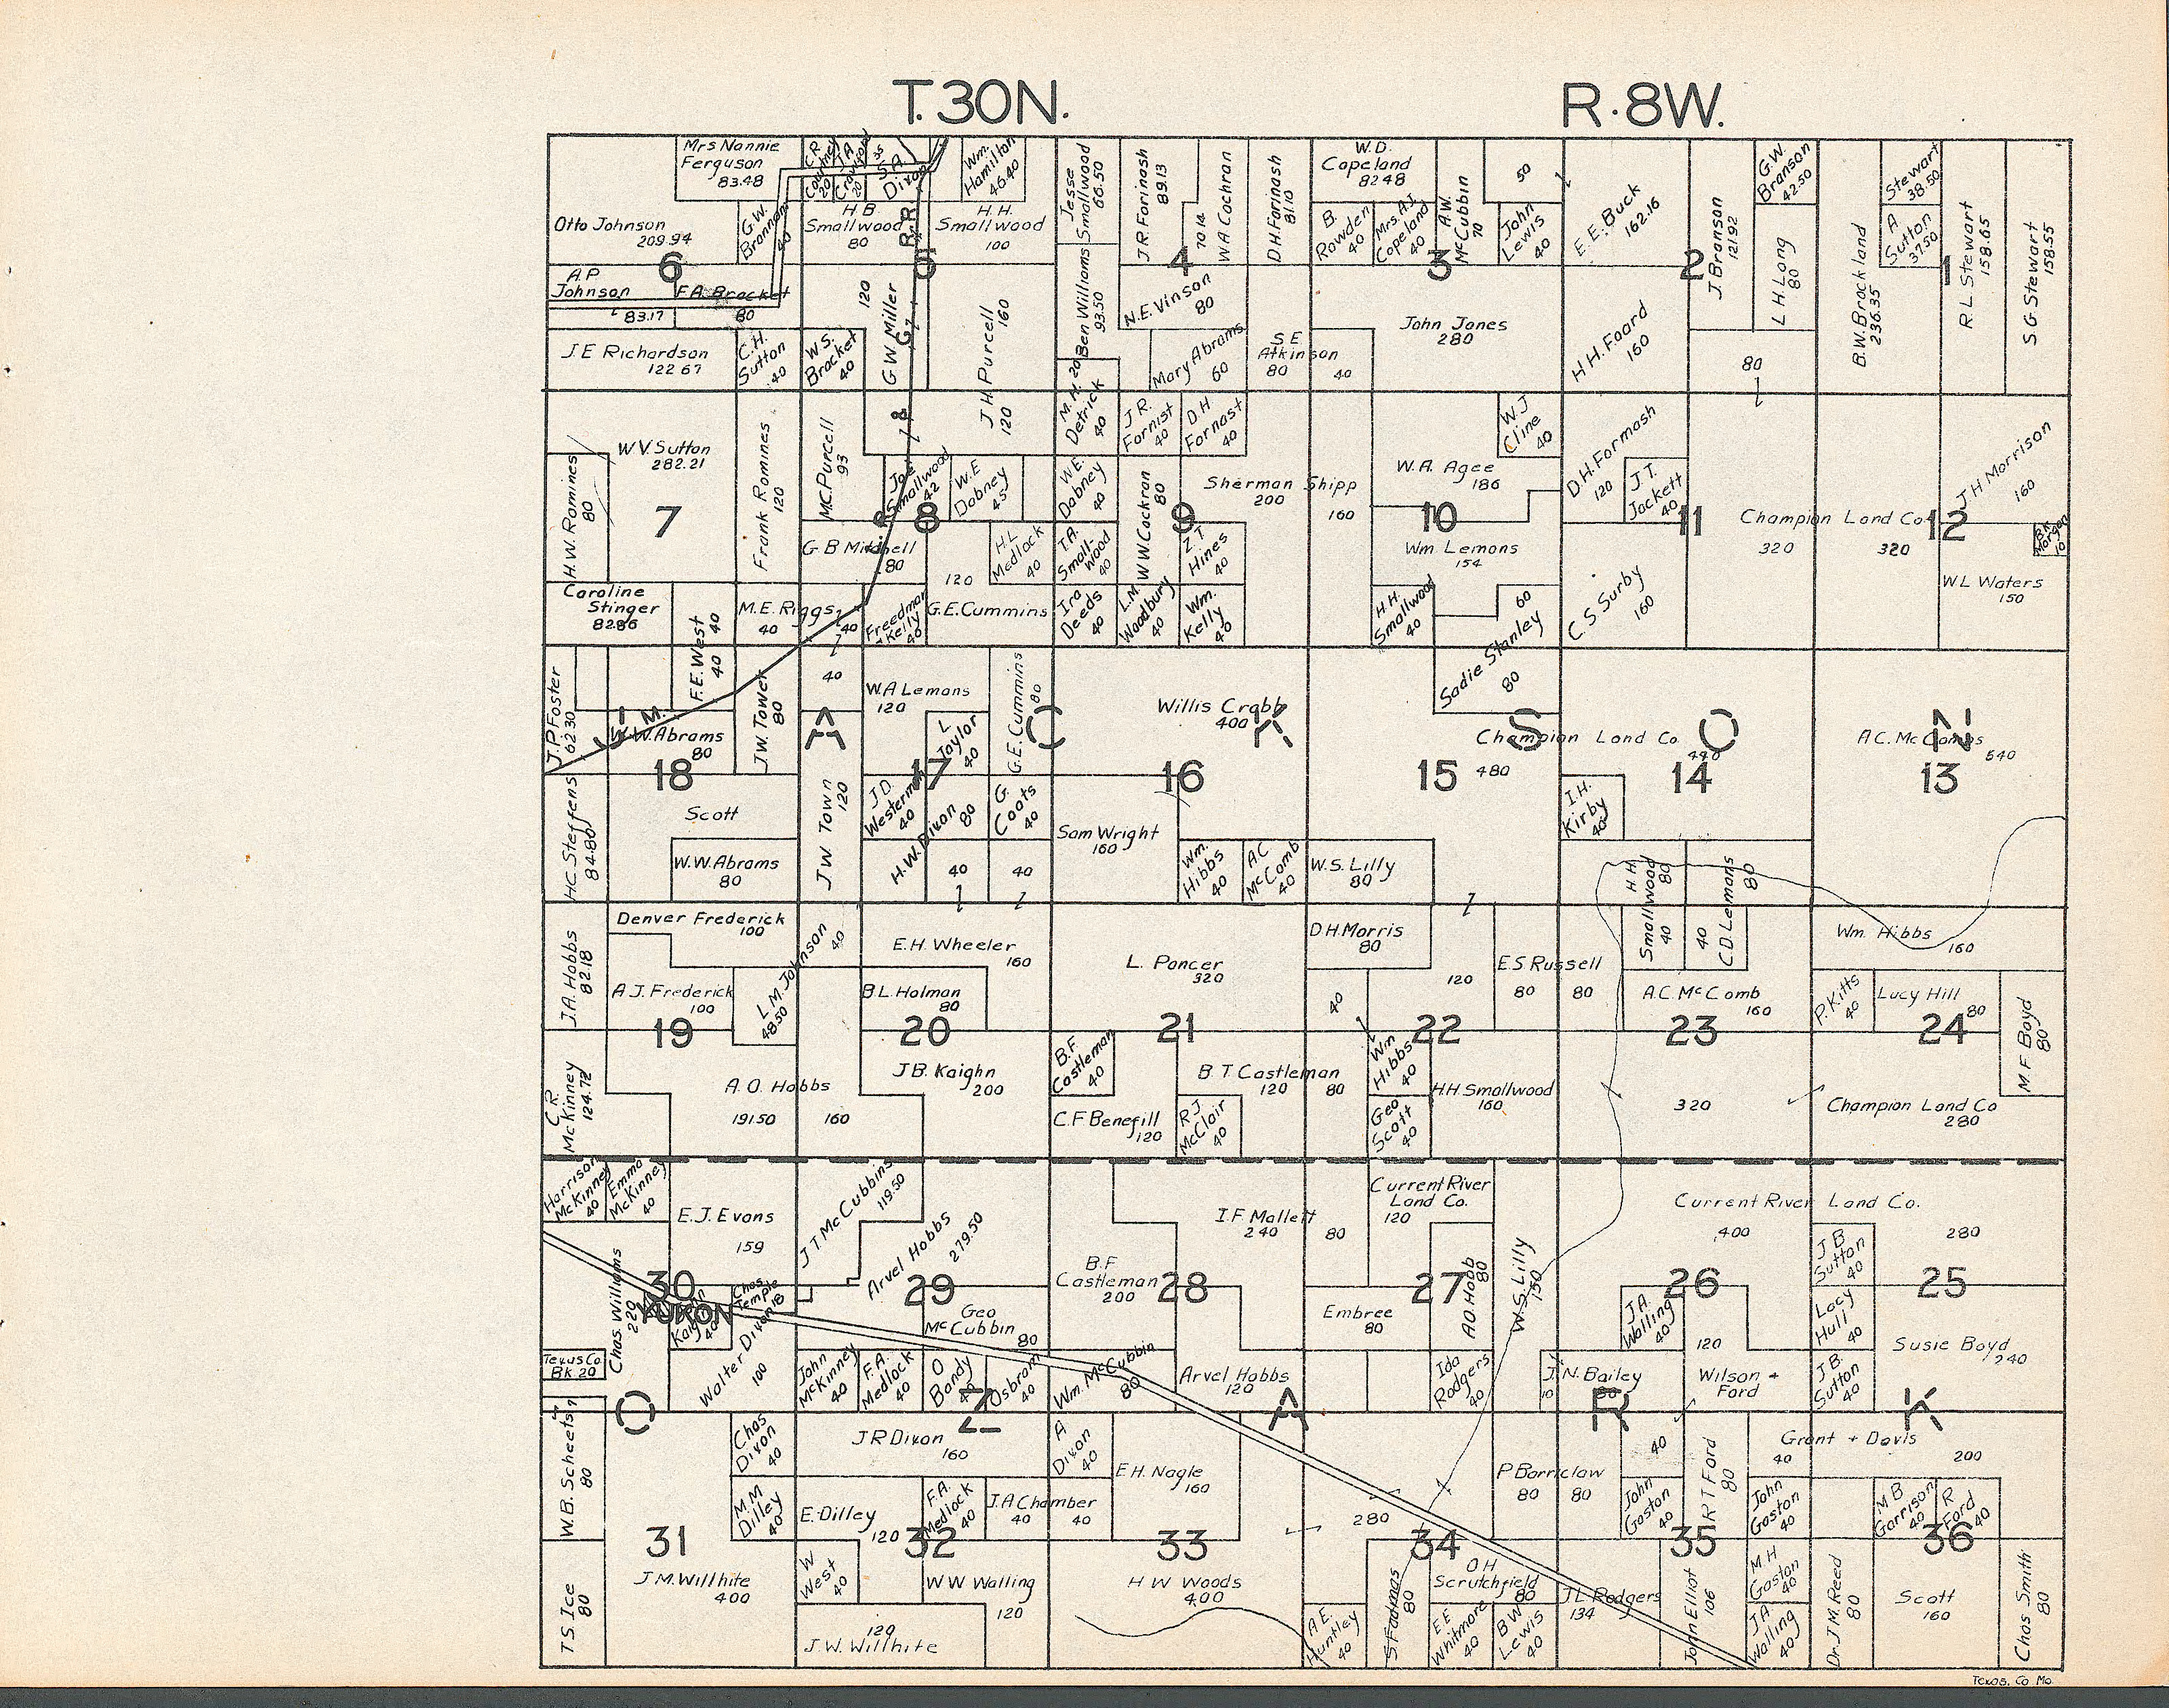 T.30N.
R.8W.
Mrs Nannie
Ferguson
83.48
C.R.
Courtney
20
J A
20
35
S A
Dixon
Wm.
Hamilton
46.40
Otto Johnson
209.94
G.W.
Brannam
40
H B
Smallwood
80
R.R.
H. H.
Smallwood
100
Jesse
Smallwood
66.50
J R Forinash
89.13
70 14
W A Cochran
D H Farinash
81.10
W.D.
Copeland
82 48
B.
Rowden
40
Mrs. A.J.
Copeland
40
A.W.
McCubbin
70
50
John
Lewis
40
E.E. Buck
162.16
J. Branson
121.92
G.W.
Branson
42.50
L H Long
80
B.W. Brockland
236.35
Stewart
38.50
A
Sutton
37.50
R L Stewart
158.65
S G Stewart
158.55
6
5
4
3
2
1
A P
Johnson
83.17
F.A. Bracket
80
J E Richardson
122 67
C.H.
Sutton
40
W S.
Bracket
40
120
G W Miller
J H Purcell
160
120
Ben Williams
93.50
N.E. Vinson
80
Mary Abrams
60
S E
Atkinson
80
40
John Jones
280
H H. Foard
160
80
M. H. 20
Detrick
40
J R.
Fornist
40
D H
Fornast
40
W V. Sutton
282.21
H.W. Romines
80
Frank Romines
120
M.C. Purcell
93
&
Joe
Smallwood
42
W. E
Dabney
45
W.E.
Dabney
40
W W Cockran
80
Sherman Shipp
200
160
W.A. Agee
186
W J
Cline
40
D.H. Formash
120
J T.
Jackett
40
Champion Land Co
320
320
J H Morrison
160
B.K.
Morgan
10
7
8
9
10
11
12
G B Mitchell
80
120
H L
Medlock
40
T.A.
Small-
wood
40
Z. T.
Hines
40
Wm Lemons
154
C. S. Surby
160
W L Waters
150
Caroline
Stinger
82.86
F.E. West
40
40
M. E. Riggs
40
40
Freedman
& Kelly
40
G.E. Cummins
Ira
Deeds
40
L.M.
Woodbury
40
Wm.
Kelly
40
H. H.
Smallwood
40
60
Sadie Stanley
80
J. P. Foster
62 30
J. M.
W.W. Abrams
80
J.W. Tower
80
40
W.A Lemons
120
L
Taylor
40
G.E. Cummins
80
Willis Crabb
400
Champion Land Co
480
440
A.C. McCombs
640
J A C K S O N
18
17
16
15
14
13
H C Steffens
84.80
Scott
W. W. Abrams
80
J W Town
120
J D.
Westerman
40
H.W. Dixon
80
G.
Coots
40
40
40
Sam Wright
160
Wm.
Hibbs
40
A C
McComb
40
W.S. Lilly
80
I.H.
Kirby
40
H H
Smallwood
80
40
C.D. Lemons
80
40
Denver Frederick
100
J.A. Hobbs
82.18
A J. Frederick
100
L M. Johnson
40
48.50
E.H. Wheeler
160
B L. Holman
80
L. Pancer
320
D H. Morris
80
40
120
E S Russell
80
80
A.C. McComb
160
Wm. Hibbs
160
P. Kitts
40
Lucy Hill
80
M F Boyd
80
19
20
21
22
23
24
C R.
McKinney
124.72
A. O. Hobbs
191.50
160
J B. Kaighn
200
B. F.
Castleman
40
C. F. Benefill
120
B T Castleman
120
80
R J
McClair
40
Wm
Hibbs
40
Geo
Scott
40
H.H. Smallwood
160
320
Champion Land Co
280
Harrison
McKinney
40
Emma
McKinney
40
E. J. Evans
159
J T. McCubbins
119.50
Arvel Hobbs
279.50
B.F
Castleman
200
I. F. Mallett
240
80
Current River
Land Co.
120
Current River Land Co.
400
280
J B
Sutton
40
30
29
28
27
26
25
YUKON
Chas Williams
220
Kaighn
40
Chas
Temple
18
Walter Dixon
100
Geo
McCubbin
80
Embree
80
A O. Hobb
80
W. S. Lilly
150
J A
Walling
40
120
Lacy
Hull
40
Susie Boyd
240
Texas Co
Bk 20
John
McKinney
40
F.A.
Medlock
40
O
Bandy
40
Osbram
40
Wm. McCubbin
80
Arvel Hobbs
120
Ida
Rodgers
40
10
J. N. Bailey
80
Wilson +
Ford
J. B.
Sutton
40
O Z A R K
W.B. Scheets
80
Chas
Dixon
40
M M
Dilley
40
J R Dixon
160
A
Dixon
40
E H. Nagle
160
E. Dilley
120
F.A.
Medlock
40
J. A Chamber
40
40
280
P Barriclaw
80
80
40
John
Gaston
40
R T Ford
80
Grant + Davis
40
200
John
Gaston
40
M B
Garrison
40
R
Ford
40
31
32
33
34
35
36
T S. Ice
80
J. M. Willhite
400
W
West
40
W W Walling
120
120
J. W. Willhite
H W Woods
400
A E.
Huntley
40
S Fadmas
80
O H
Scrutchfield
80
E E
Whitmore
40
B W
Lewis
40
J L Rodgers
134
John Elliot
106
M H
Gaston
40
J A
Walling
40
Dr J M Reed
80
Scott
160
Chas Smith
80
Texas. Co Mo.